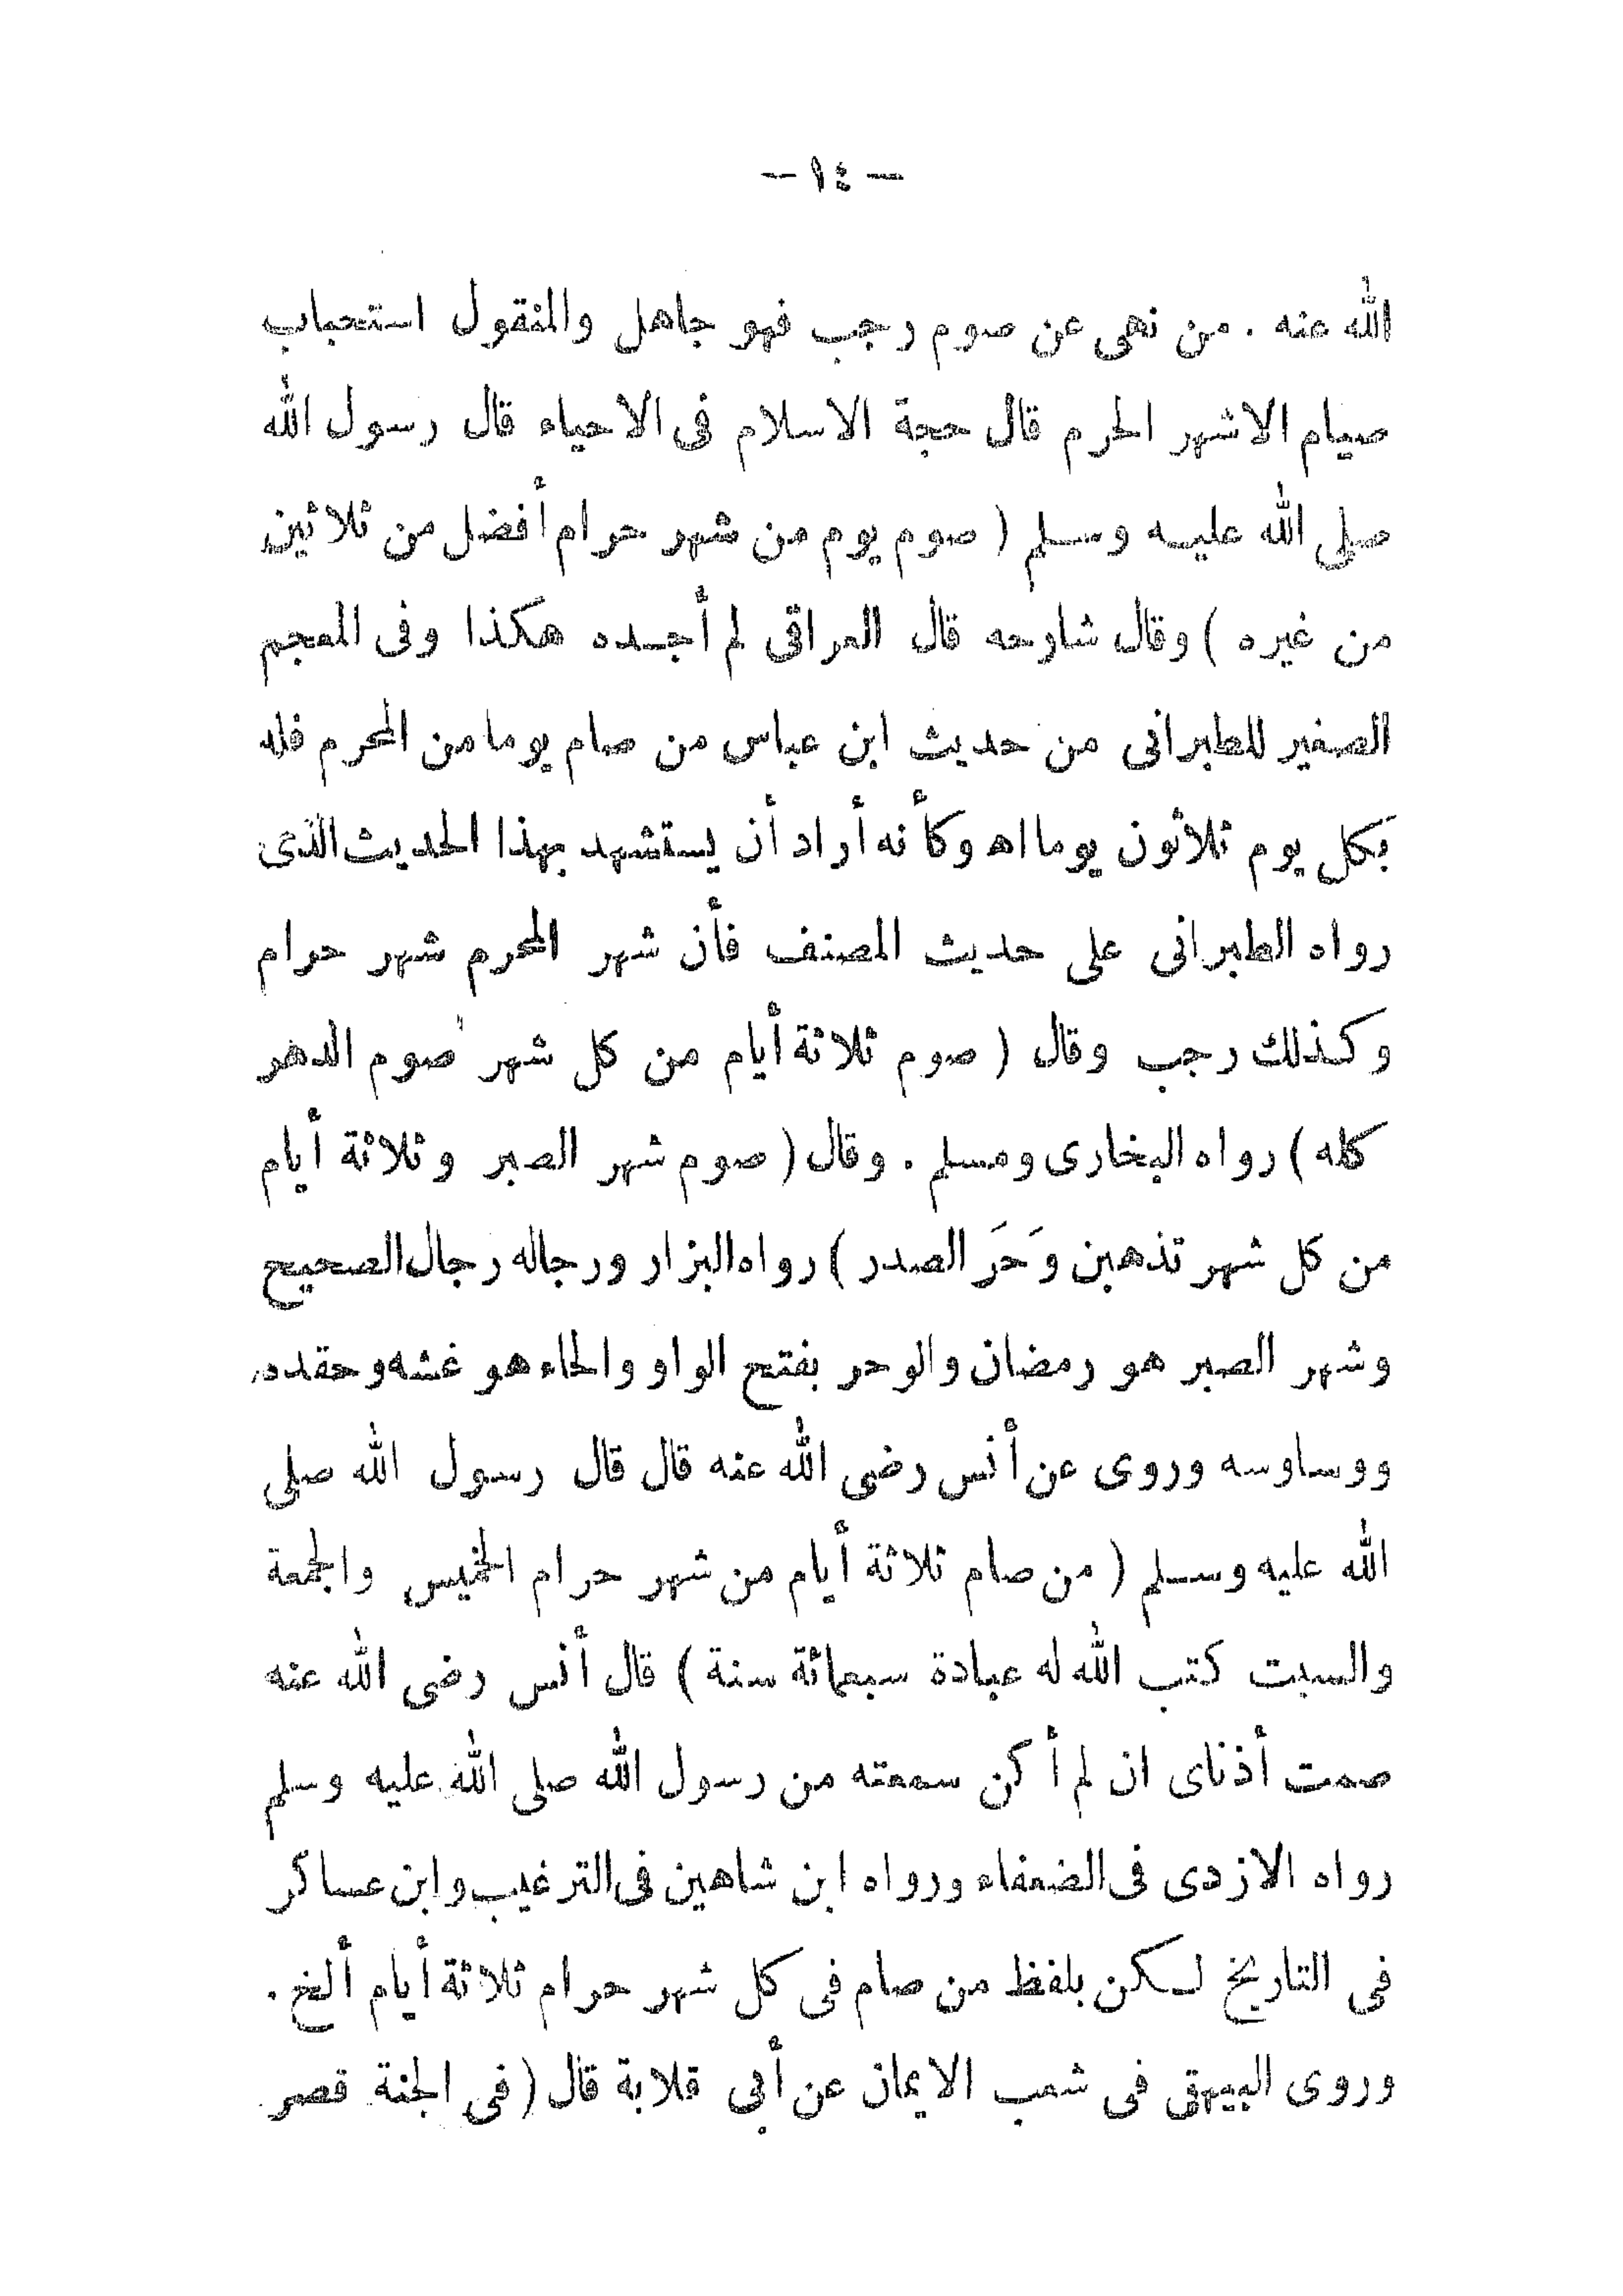 — ١٤ —
الله عنه . من نهى عن صوم رجب فهو جاهل والمنقول استحباب
صيام الاشهر الحرم قال حجة الاسلام فى الاحياء قال رسول الله
صلى الله عليه وسلم ( صوم يوم من شهر حرام أفضل من ثلاثين
من غيره ) وقال شارحه قال العراقى لم أجده هكذا وفى المعجم
الصغير للطبرانى من حديث ابن عباس من صام يوما من المحرم فله
بكل يوم ثلاثون يوما اه وكأنه أراد أن يستشهد بهذا الحديث الذى
رواه الطبرانى على حديث المصنف فأن شهر المحرم شهر حرام
وكذلك رجب وقال ( صوم ثلاثة أيام من كل شهر صوم الدهر
كله ) رواه البخارى ومسلم . وقال ( صوم شهر الصبر وثلاثة أيام
من كل شهر تذهبن وَحَر الصدر ) رواه البزار ورجاله رجال الصحيح
وشهر الصبر هو رمضان والوحر بفتح الواو والحاء هو غشه وحقده
ووساوسه وروى عن أنس رضى الله عنه قال قال رسول الله صلى
الله عليه وسلم ( من صام ثلاثة أيام من شهر حرام الخميس والجمعة
والسبت كتب الله له عبادة سبعمائة سنة ) قال أنس رضى الله عنه
صمت أذناى ان لم أكن سمعته من رسول الله صلى الله عليه وسلم
رواه الازدى فى الضعفاء ورواه ابن شاهين فى الترغيب وابن عساكر
فى التاريخ لكن بلفظ من صام فى كل شهر حرام ثلاثة أيام ألخ .
وروى البيهقى فى شعب الايمان عن أبى قلابة قال ( فى الجنة قصر